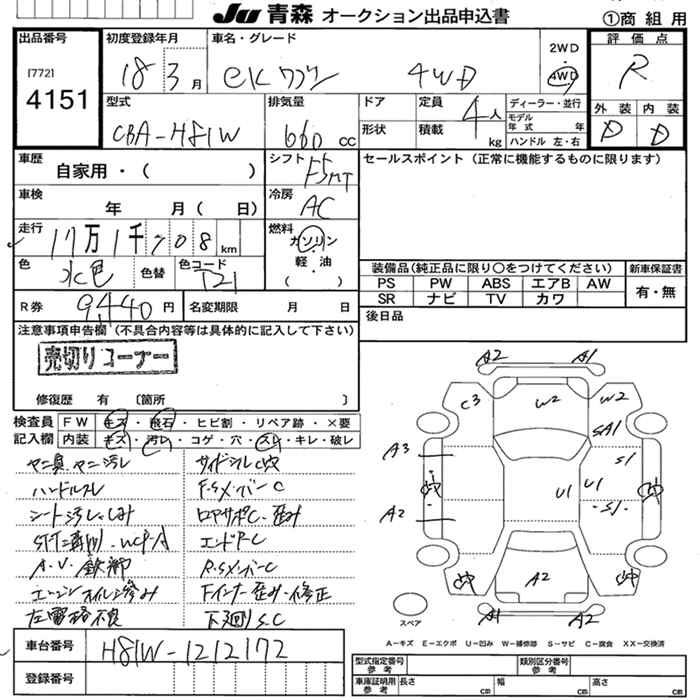 JU 青森 オークション出品申込書
①商組用
出品番号
[772]
4151
初度登録年月
18 3月
車名・グレード
eKワゴン 4WD
2WD
4WD
評価点
R
外装 内装
D D
型式
CBA-H81W
排気量
660 cc
ドア
形状
定員 4人
積載 kg
ディーラー・並行
モデル年式 年
ハンドル 左・右
車歴
自家用・( )
シフト
F5MT
セールスポイント(正常に機能するものに限ります)
車検
年 月( 日)
冷房
AC
走行
17万1千708km
燃料
ガソリン
・
軽油
( )
色
水色
色替
色コード
121
装備品(純正品に限り○をつけてください)
新車保証書
PS PW ABS エアB AW
SR ナビ TV カワ
有・無
R券 9,440円
名変期限 月 日
後日品
注意事項申告欄(不具合内容等は具体的に記入して下さい)
売切りコーナー
修復歴 有 〔箇所 〕
検査員記入欄
FW キズ・飛石・ヒビ割・リペア跡・×要
内装 キズ・汚レ・コゲ・穴・スレ・キレ・破レ
ヤニ臭.ヤニ汚レ
ハンドルスレ
シート汚レ.シミ
A.V.欠品
エンジンオイル滲み
左電格不良
サイドシルC
F.SX.バーC
ロアサポC.歪み
エンドP C
R.SX.バーC
Fインナー歪み.修正
下廻りS.C
A2 A1
C3 W2 W2
SA1
A3 S1
U1 U1
A2 S1
A2
A1 A2
スペア
A=キズ E=エクボ U=凹み W=補修跡 S=サビ C=腐食 XX=交換済
車台番号
H81W-1212172
登録番号
型式指定番号 参考
類別区分番号 参考
車庫証明用 参考 長さ cm 幅 cm 高さ cm